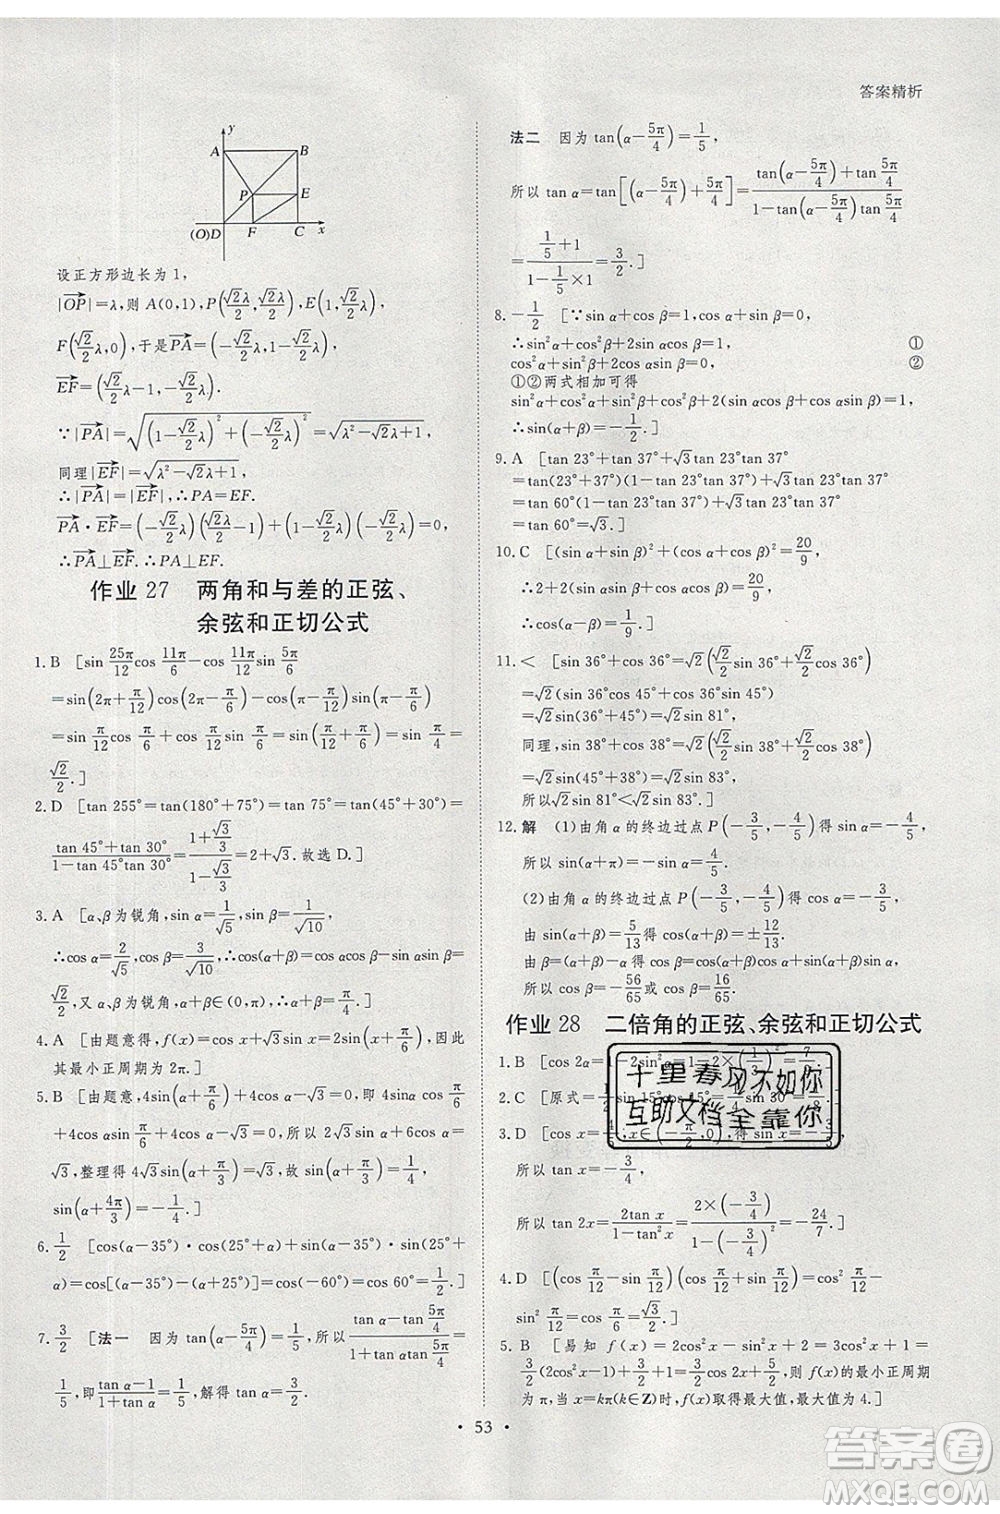 答案精析
y
A
B
P
E
(O)D
F
C
x
设正方形边长为1,
|OP|=λ,则 A(0,1),P(√2/2λ,√2/2λ),E(1,√2/2λ),
F(√2/2λ,0),于是PA=(-√2/2λ,1-√2/2λ),
EF=(√2/2λ-1,-√2/2λ).
∵|PA|=√((1-√2/2λ)²+(-√2/2λ)²)=√(λ²-√2λ+1),
同理|EF|=√(λ²-√2λ+1),
∴|PA|=|EF|,∴PA=EF.
PA·EF=(-√2/2λ)(√2/2λ-1)+(1-√2/2λ)(-√2/2λ)=0,
∴PA⊥EF.∴PA⊥EF.
作业 27 两角和与差的正弦、
余弦和正切公式
1. B [sin 25π/12 cos 11π/6-cos 11π/12 sin 5π/6
=sin(2π+π/12)cos(2π-π/6)-cos(π-π/12)sin(π-π/6)
=sin π/12 cos π/6+cos π/12 sin π/6=sin(π/12+π/6)=sin π/4=
√2/2.]
2. D [tan 255°=tan(180°+75°)=tan 75°=tan(45°+30°)=
(tan 45°+tan 30°)/(1-tan 45°tan 30°)=(1+√3/3)/(1-√3/3)=2+√3.故选 D.]
3. A [α、β为锐角,sin α=1/√5,sin β=1/√10,
∴cos α=2/√5,cos β=3/√10,∴cos(α+β)=cos αcos β-sin αsin β=
√2/2,又 α、β为锐角,α+β∈(0,π),∴α+β=π/4.]
4. A [由题意得,f(x)=sin x+cos x=√2sin(x+π/4),因此
其最小正周期为2π.]
5. B [由题意,4√3/5=cos(α-π/6)+sin α=cos αcos π/6+
sin αsin π/6+sin α=√3/2cos α+3/2sin α=√3sin(α+π/6)=
4/5√3,所以 sin(α+π/6)=4/5,所以 sin(α+7π/6)=-4/5,所以
sin(α+4π/3)=-4/5.]
6. 1/2 [cos(α-35°)·cos(25°+α)+sin(α-35°)·sin(25°+
α)=cos[(α-35°)-(α+25°)]=cos(-60°)=cos 60°=1/2.]
7. 3/2 [法一 因为 tan(α-5π/4)=1/5,所以(tan α-tan 5π/4)/(1+tan αtan 5π/4)=
1/5,即(tan α-1)/(1+tan α)=1/5,解得 tan α=3/2.
法二 因为 tan(α-5π/4)=1/5,
所以 tan α=tan[(α-5π/4)+5π/4]=(tan(α-5π/4)+tan 5π/4)/(1-tan(α-5π/4)tan 5π/4)
=(1/5+1)/(1-1/5×1)=3/2.]
8. -1/2 [∵sin α+cos β=1,cos α+sin β=0,
∴sin²α+cos²β+2sin αcos β=1, ①
cos²α+sin²β+2cos αsin β=0, ②
①②两式相加可得
sin²α+cos²α+sin²β+cos²β+2(sin αcos β+cos αsin β)=1,
∴sin(α+β)=-1/2.]
9. A [tan 23°+tan 37°+√3tan 23°tan 37°
=tan(23°+37°)(1-tan 23°tan 37°)+√3tan 23°tan 37°
=tan 60°=√3.]
10. C [(sin α+sin β)²+(cos α+cos β)²=20/9,
∴2+2(sin αsin β+cos αcos β)=20/9,
∴cos(α-β)=1/9.]
11. < [sin 36°+cos 36°=√2(√2/2sin 36°+√2/2cos 36°)
=√2(sin 36°cos 45°+cos 36°sin 45°)
=√2sin(36°+45°)=√2sin 81°,
同理,sin 38°+cos 38°=√2(√2/2sin 38°+√2/2cos 38°)
=√2sin(38°+45°)=√2sin 83°,
所以√2sin 81°<√2sin 83°.]
12. 解 (1)由角 α 的终边过点 P(-3/5,-4/5)得 sin α=-4/5,
所以 sin(α+π)=-sin α=4/5.
(2)由角 α 的终边过点 P(-3/5,-4/5)得 cos α=-3/5,
由 sin(α+β)=5/13得 cos(α+β)=±12/13.
由 β=(α+β)-α得 cos β=cos(α+β)cos α+sin(α+β)sin α,
所以 cos β=-56/65或 cos β=16/65.
作业 28 二倍角的正弦、余弦和正切公式
1. B [cos 2α=1-2sin²α=1-2×(1/3)²=7/9.]
2. C [原式=
3. D
所以 tan 2x=2tan x/(1-tan²x)=(2×(-3/4))/(1-(-3/4)²)=-24/7.]
4. D [(cos π/12-sin π/12)(cos π/12+sin π/12)=cos² π/12-
sin² π/12=cos π/6=√3/2.]
5. B [易知 f(x)=2cos²x-sin²x+2=3cos²x+1=
3/2(2cos²x-1)+3/2+1=3/2cos 2x+5/2,则 f(x)的最小正周期
为 π,当 x=kπ(k∈Z)时,f(x)取得最大值,最大值为 4.]
十里春风不如你
互助文档全靠你
• 53 •
答案卷
MXQE.COM